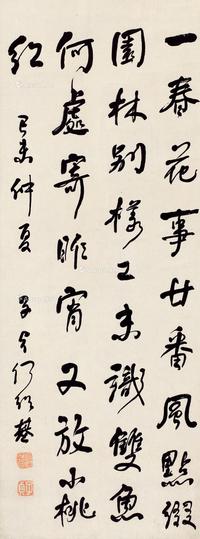 一春花事廿番風點綴
園林別樣工未識雙魚
何處寄昨宵又放小桃
紅 己未仲夏 子貞何紹基